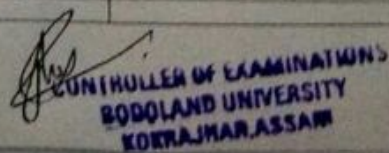 CONTROLLER OF EXAMINATIONS
BODOLAND UNIVERSITY
KOKRAJHAR, ASSAM